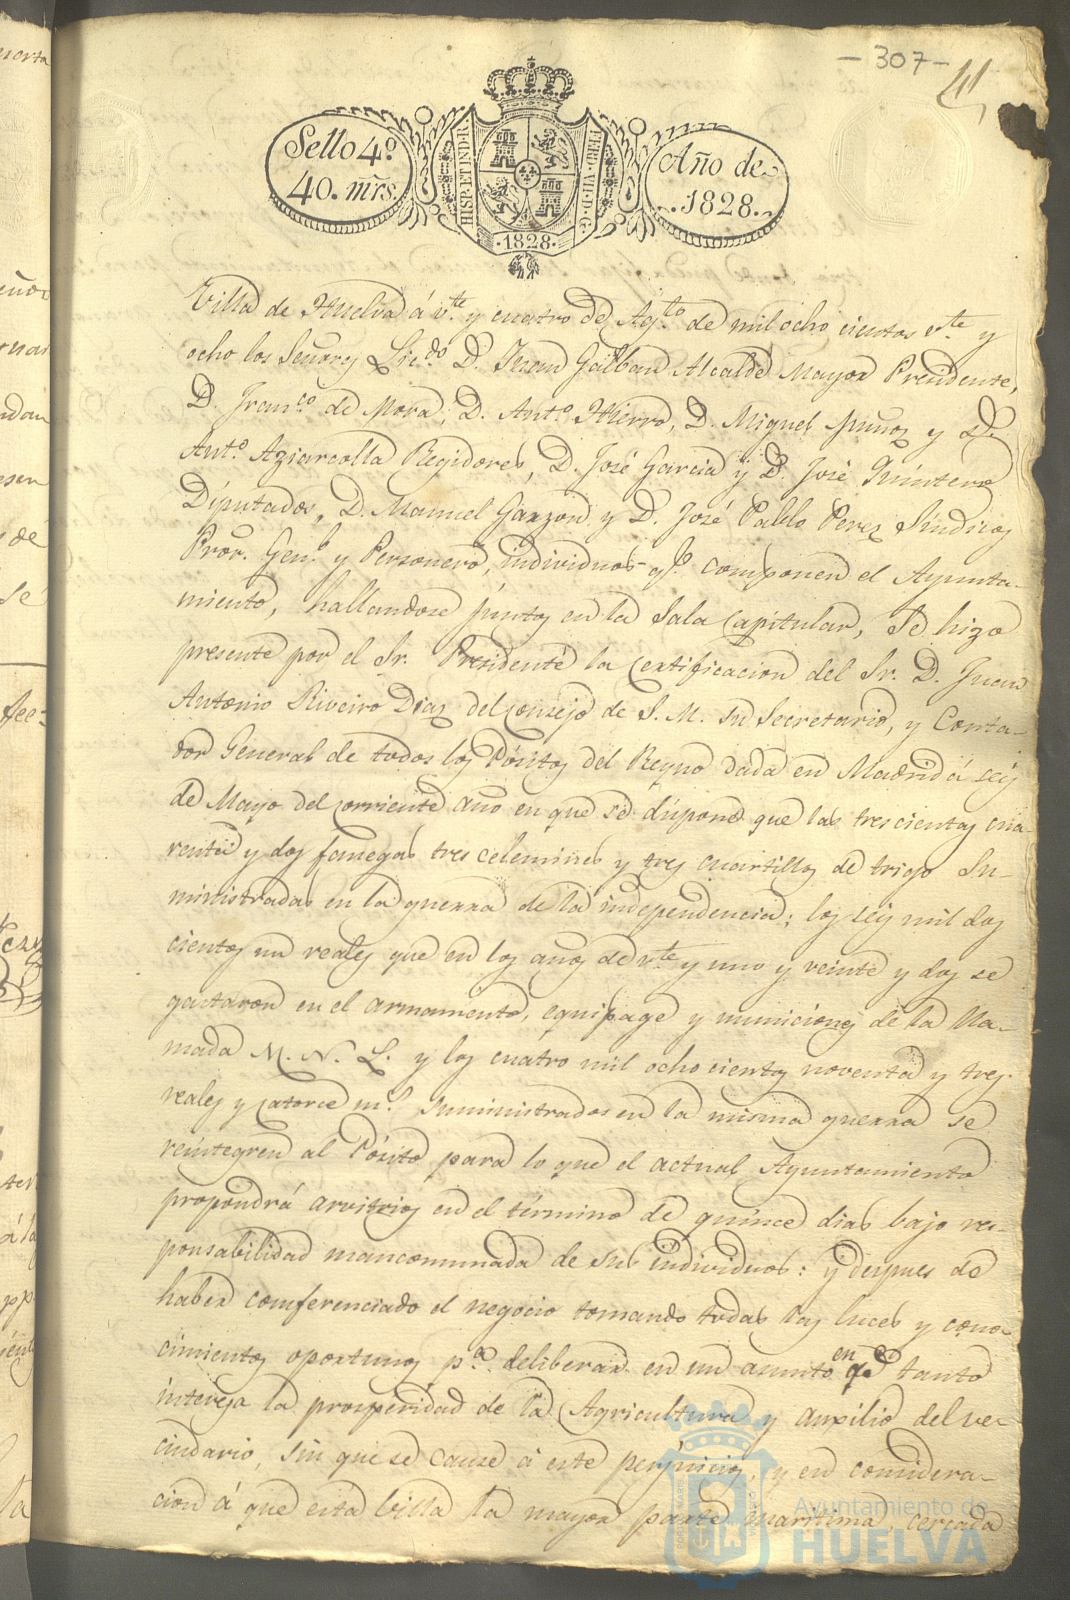 - 307 -
41
Sello 4º
40. mrs.
HISP. ET IND. R.
FERD. VII. D. G.
Año de
1828.
1828.
Villa de Huelva á vte. y cuatro de Agto. de mil ocho cientos vte. y
ocho los Señores Licdo. D. Juan Galban Alcalde Mayor Presidente,
D. Franco. de Mora, D. Anto. Hierro, D. Miguel Muñoz y D.
Anto. Aziarcolla Regidores, D. José Garcia y D. José Quintero
Diputados, D. Manuel Garzon y D. José Pablo Perez Sindicos
Pror. Genl. y Personero, individuos qe. componen el Ayunta-
miento, hallandose juntos en la Sala Capitular, Se hizo
presente por el Sr. Presidente la Certificacion del Sr. D. Juan
Antonio Riveiro Diaz del Consejo de S. M. su Secretario, y Conta-
dor General de todos los Pósitos del Reyno dada en Madrid á seis
de Mayo del corriente año en que se dispone que las trescientas cua-
renta y dos fanegas tres celemines y tres cuartillos de trigo Su-
ministradas en la guerra de la independencia; los seis mil dos
cientos un reales que en los años de vte. y uno y veinte y dos se
gastaron en el armamento, equipage y municiones de la lla-
mada M. N. L. y los cuatro mil ocho cientos noventa y tres
reales y catorce ms. suministrados en la misma guerra se
reintegren al Pósito para lo que el actual Ayuntamiento
propondrá arvitrios en el término de quince dias bajo res-
ponsabilidad mancomunada de sus individuos: y despues de
haber comferenciado el negocio tomando todas las luces y cono-
cimientos oportunos pa. deliberar en un asunto en qe. tanto
interesa la prosperidad de la Agricultura y auxilio del ve-
cindario, sin que se cause á este perjuicios, y en considera-
cion á que esta Villa la mayor parte maritima, cercada
Ayuntamiento de
HUELVA